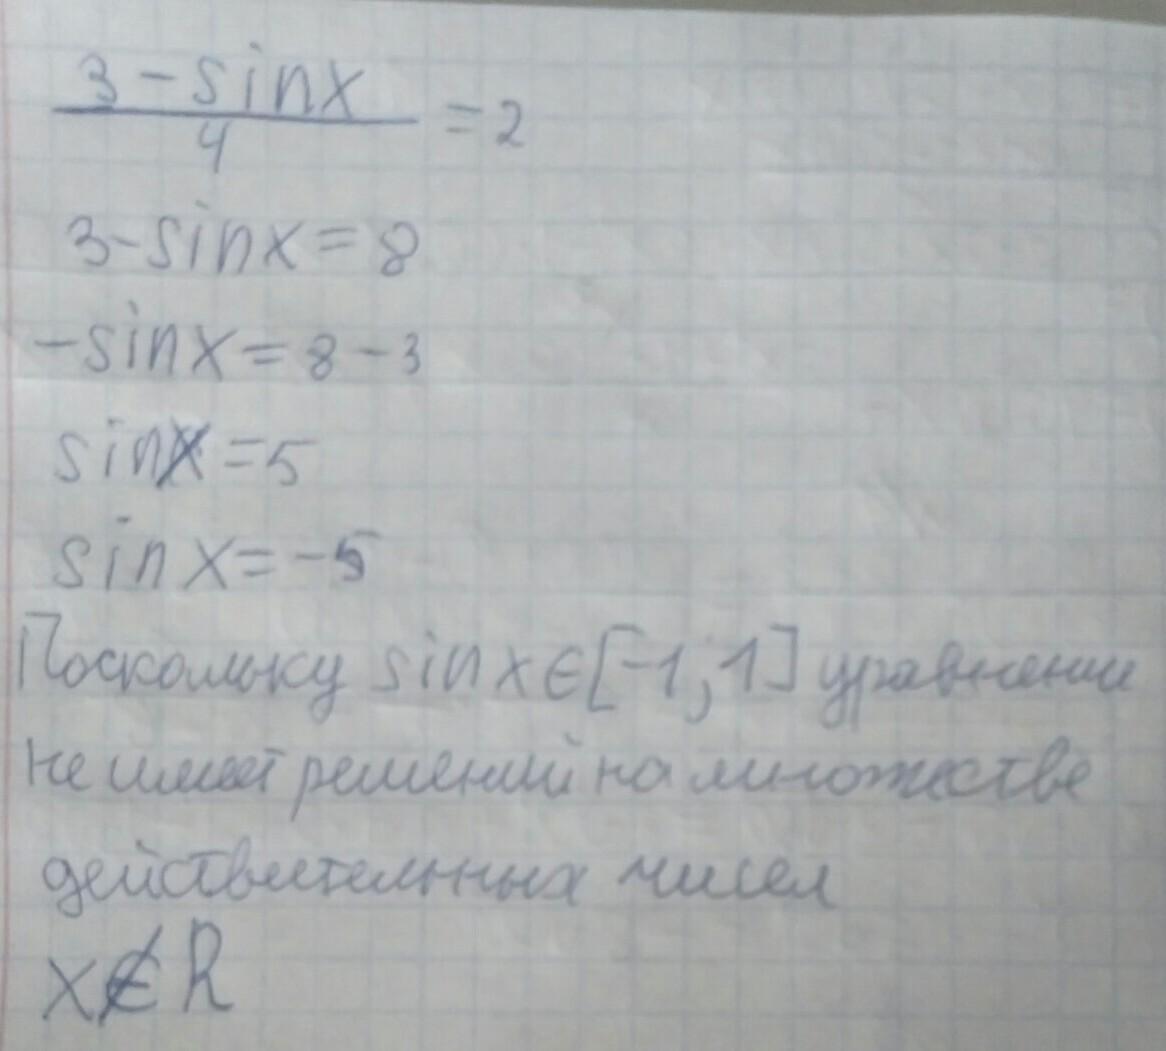 3-sinx
4
=2
3-sinx=8
-sinx=8-3
sinx=5
sinx=-5
Поскольку sinx∈[-1;1] уравнение
не имеет решений на множестве
действительных чисел
x∉R